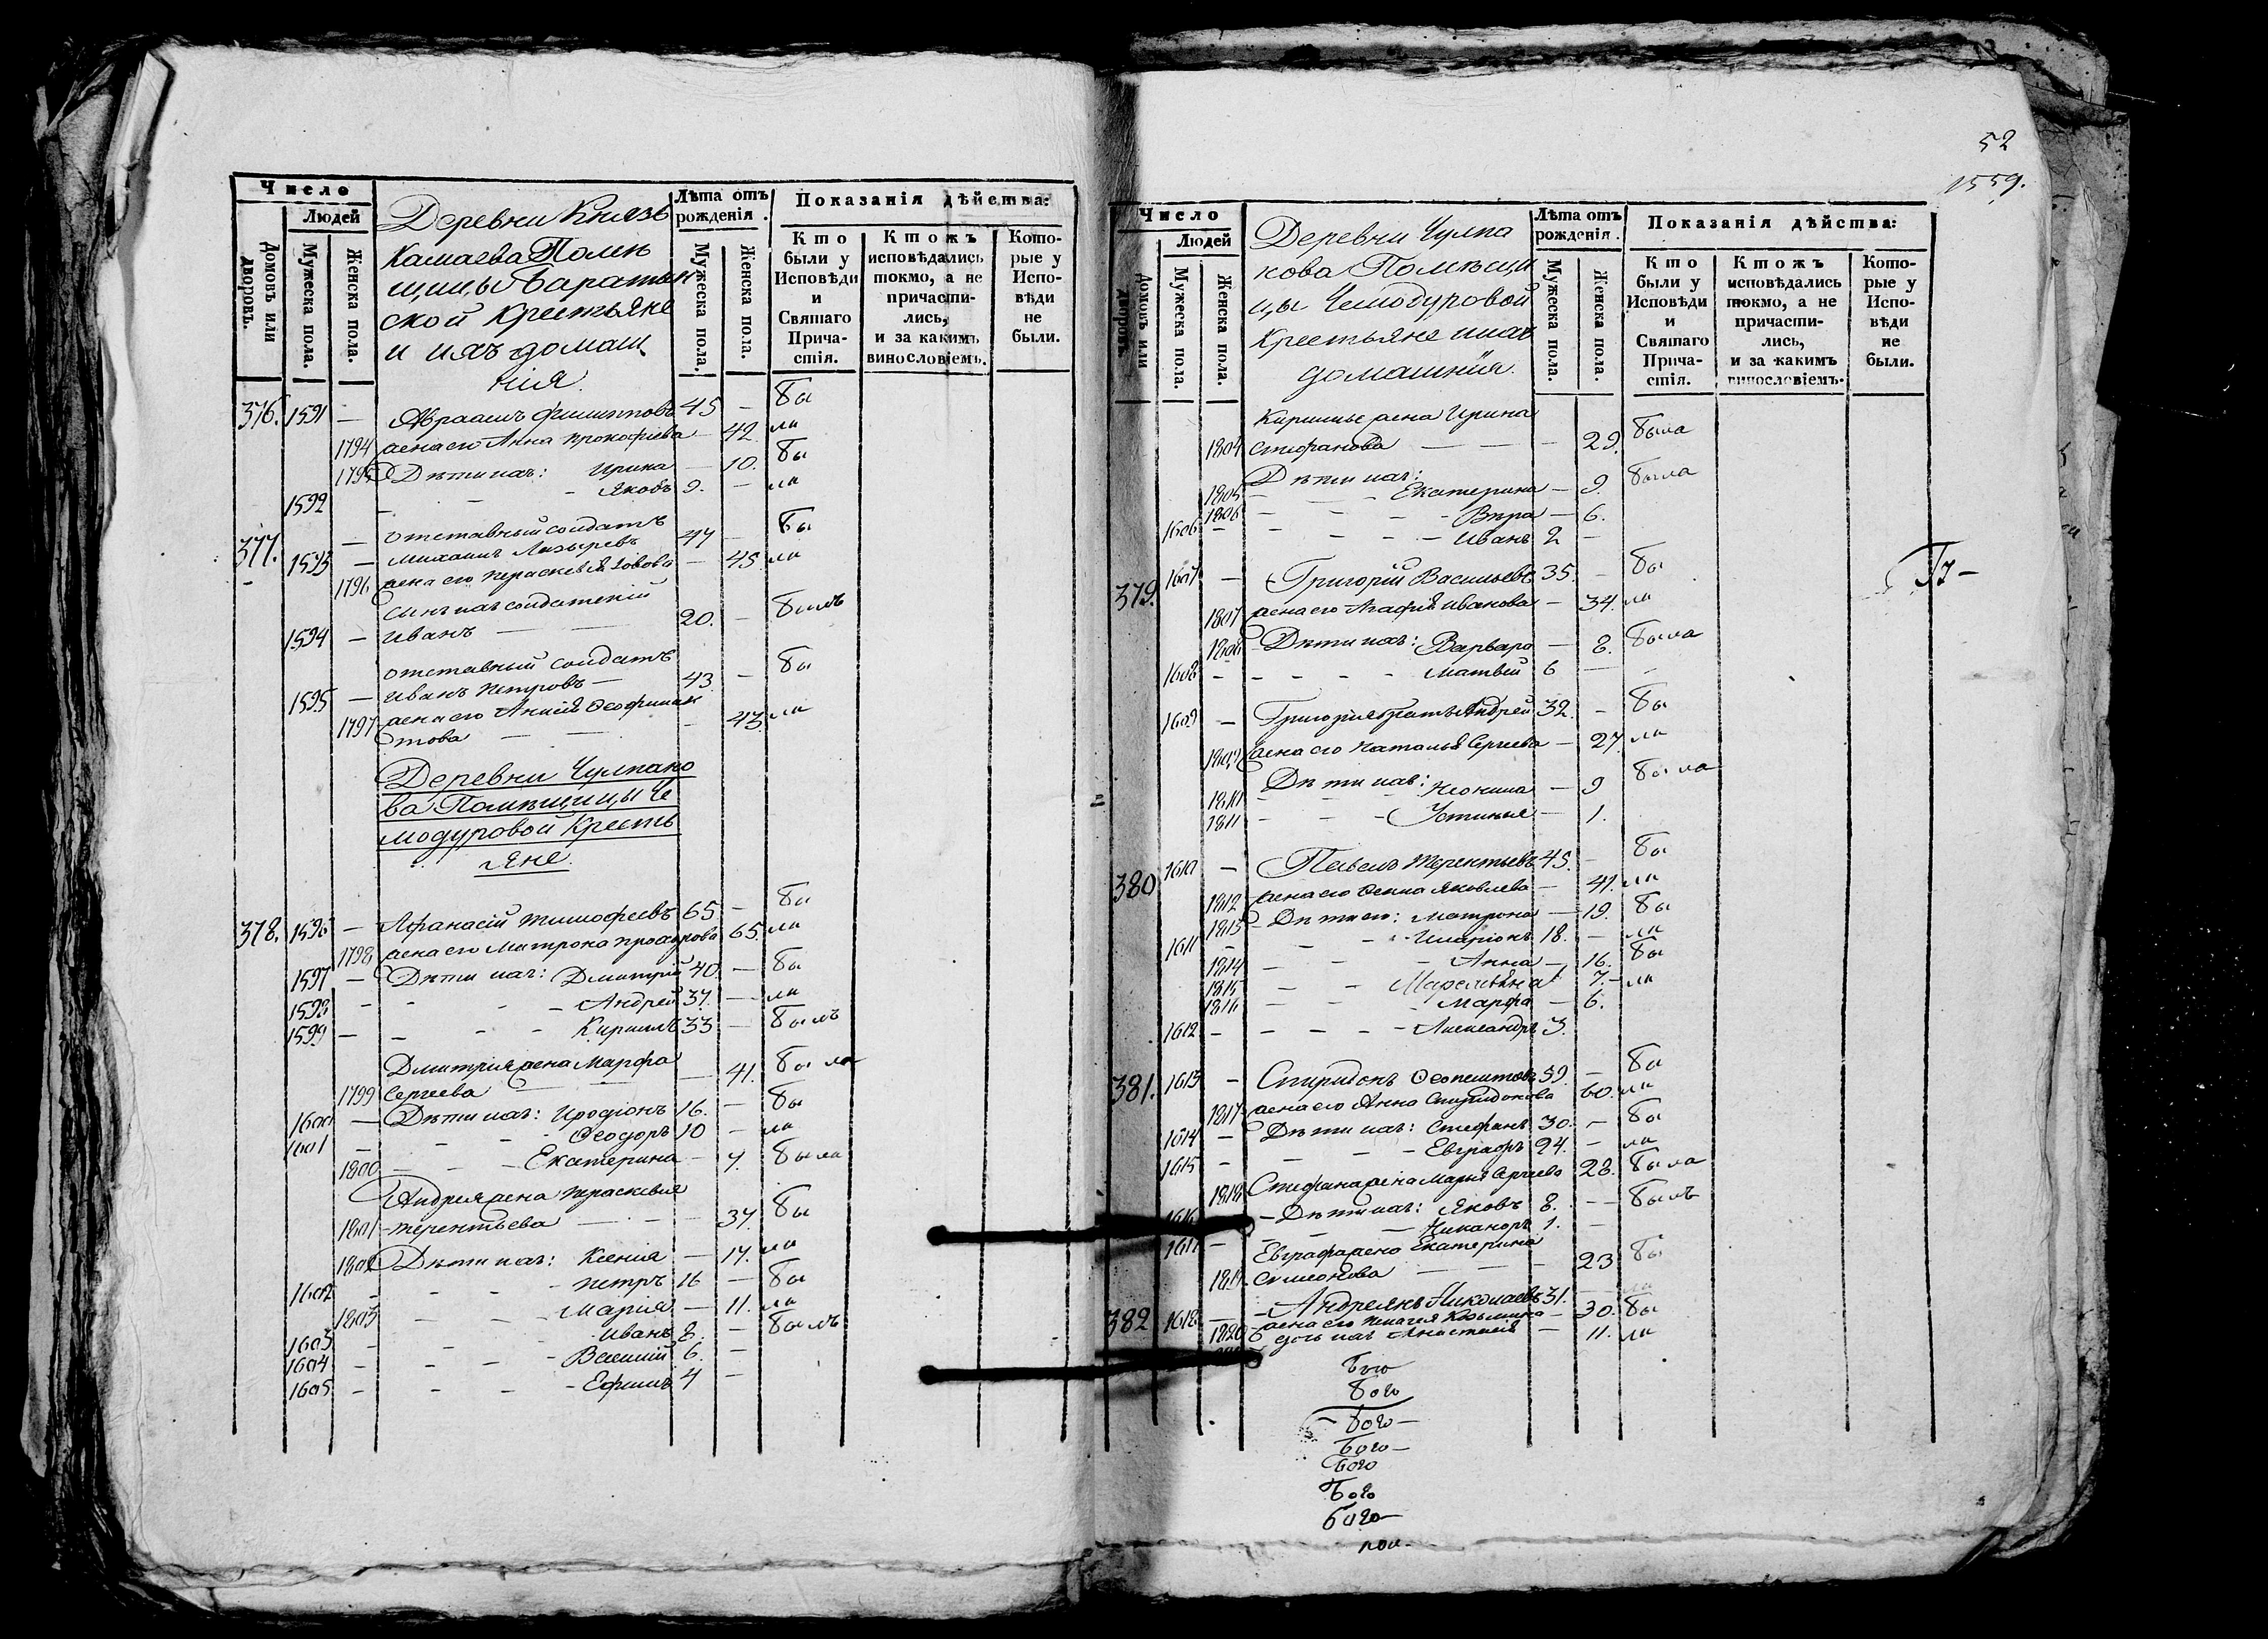 Число
Людей
Домовъ или дворовъ.
Мужеска пола.
Женска пола.
Деревни Князь
Камаева Помѣ
щицы Баратын
ской Крестьяне
и ихъ домаш
нія.
Лѣта отъ рожденія.
Мужеска пола.
Женска пола.
Показанія дѣйства:
Кто были у Исповѣди и Святаго Прича-стія.
Ктожъ исповѣдались токмо, а не причасти-лись, и за какимъ винословіемъ.
Кото-рые у Испо-вѣди не были.
376. 1591 — Авраамъ Филипповъ 45 — бы
1794 жена его Анна Прокофіева — 42. ли
1795 Дѣти ихъ: Ирина — 10. бы
1592 — Яковъ 9. — ли
377. — отставный солдатъ
1593 — Михаилъ Лазыревъ 47 — бы
1796 жена его Параскевія — 45 ли
сынъ ихъ солдатскій
1594 — Иванъ — 20. — былъ
отставный солдатъ
1595 — Иванъ Петровъ — 43 — бы
1797 жена его Анисія Ѳеофилак
това — — 43. ли
Деревни Чулпано
ва Помѣщицы Че
модуровой Кресть
яне.
378. 1596 — Афанасій Тимофеевъ 65 — бы
1798 жена его Матрона 65. ли
1597 — Дѣти ихъ: Дмитрій 40 — бы
1598 — Андрей 37. — ли
1599 — Кириллъ 33 — былъ
Дмитрія жена Марфа
1799 Сергеева — 41. была
1600 — Дѣти ихъ: Иродіонъ 16. — бы
1601 — Ѳеодоръ 10 — ли
1800 — Екатерина — 7. была
Андрея жена Параскевия
1801 Терентьева — 37. бы
1802 Дѣти ихъ: Ксенія — 17. ли
1602 — Петръ 16 — бы
1803 — Марія — 11. ли
1603 — Иванъ 8. — былъ
1604 — Василій 6. —
1605 — Ефимъ 4 —
52
1559.
Число
Людей
Домовъ или дворовъ.
Мужеска пола.
Женска пола.
Деревни Чулпа
нова Помѣщи
цы Чемодуровой
Крестьяне и ихъ
домашнія.
Лѣта отъ рожденія.
Мужеска пола.
Женска пола.
Показанія дѣйства:
Кто были у Исповѣди и Святаго Прича-стія.
Ктожъ исповѣдались токмо, а не причасти-лись, и за какимъ винословіемъ.
Кото-рые у Испо-вѣди не были.
Кирилы жена Ирина
1804 Стефанова — — 29. была
Дѣти ихъ:
1805 — Екатерина — 9. была
1806 — Вѣра — 6.
1606 — Иванъ 2 —
379. 1607 — Григорій Васильевъ 35. — бы
1807 жена его Агафія Иванова — 34. ли
1808 Дѣти ихъ: Варвара — 8. была
1608 — Матвей 6 —
1609 — Григорія братъ Андрей 32. — бы
1809 жена его Наталья Сергеева — 27 ли
Дѣти ихъ:
1810 — Неонила — 9 была
1811 — Устинья — 1.
380. 1610 — Павелъ Терентьевъ 45. — бы
1812 жена его Яковлева — 41. ли
1813 Дѣти его: Матрона — 19. бы
1611 — Иларіонъ 18. — ли
1814 — Анна — 16. бы
1815 — 7. — ли
1816 — Марфа — 6.
1612 — Александръ 3.
381. 1613 — Спиридонъ 59. — бы
1817 жена его Анна Спиридонова 60. ли
1614 — Дѣти ихъ: Стефанъ 30. — бы
1615 — Евграфъ 24. — ли
1818 Стефана жена Марья Сергеева 28. была
1616 — Дѣти ихъ: Яковъ 8. — былъ
1617 — Никаноръ 1. —
Евграфа жена Екатерина
1819 Симеонова — 23 бы
382 1618 — Андреянъ Николаевъ 31. — ли
1820 жена его Пелагея Козьмина — 30. бы
дочь ихъ Анастасія — 11. ли